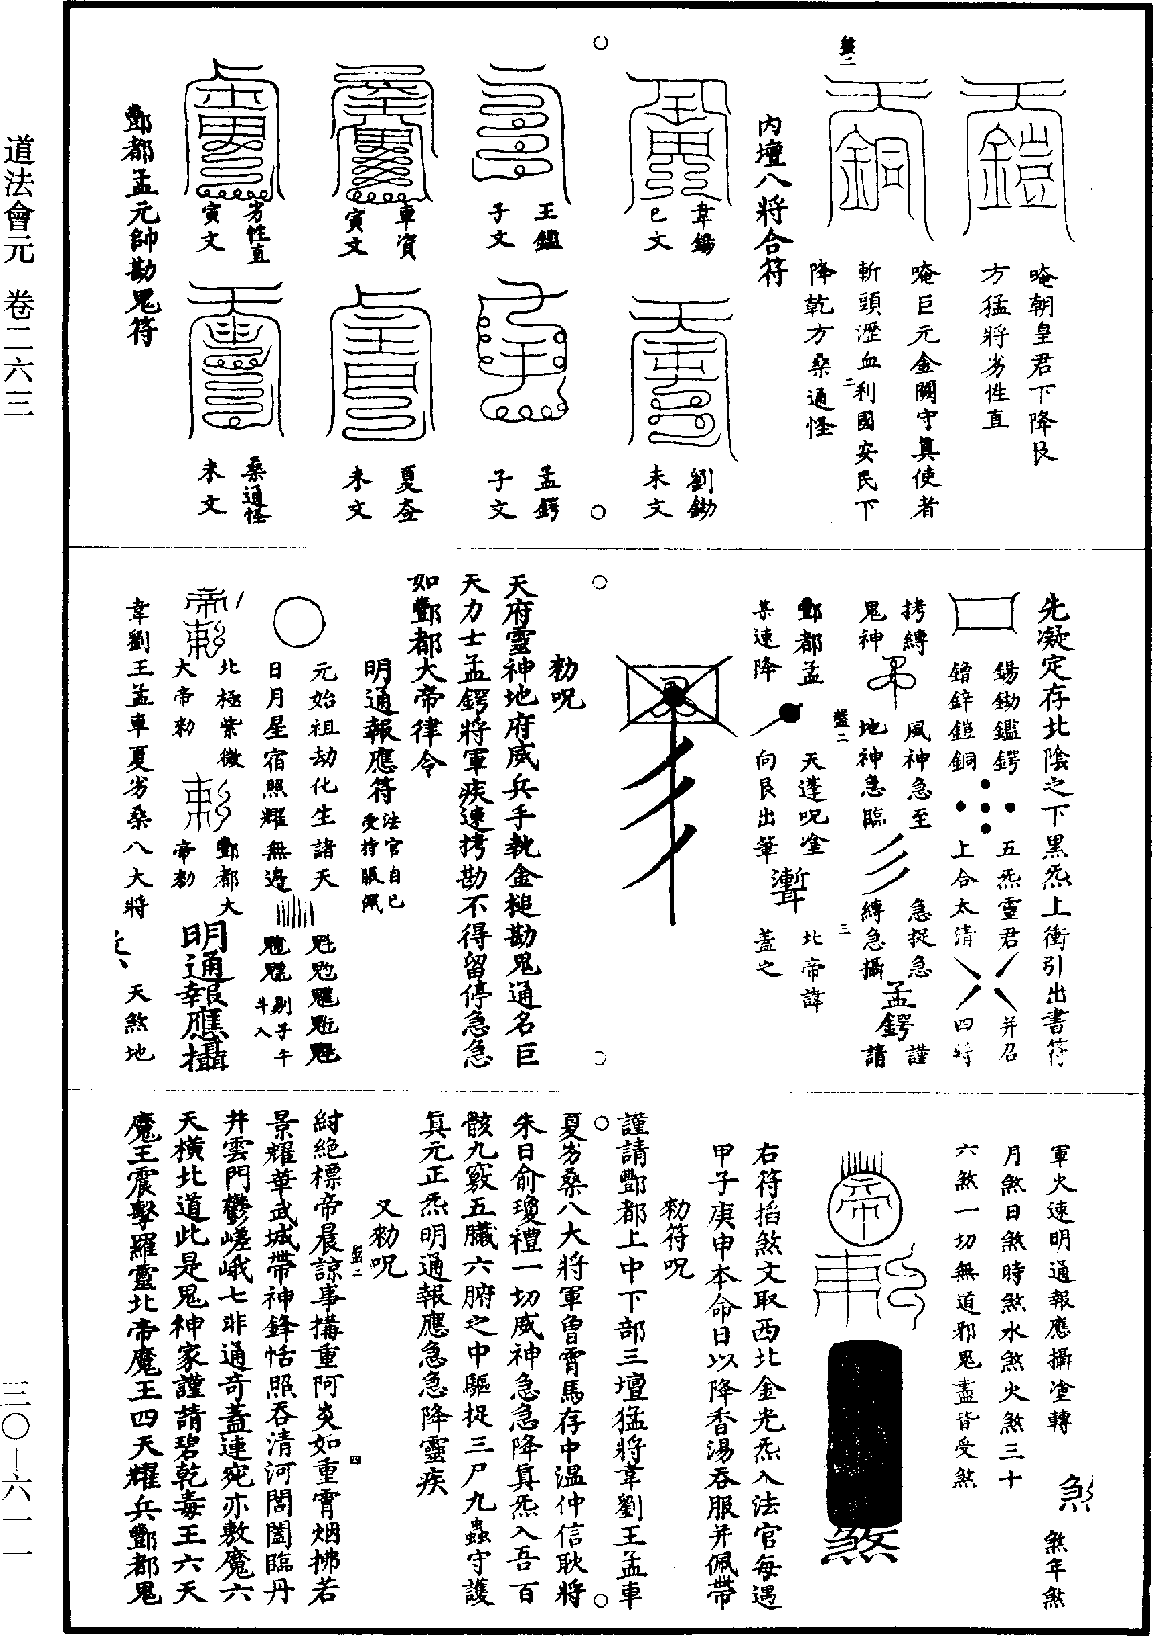 道法會元 卷二六三
三〇—六一一
鎧
唵朝皇君下降艮
方猛將劣性直
銅
唵巨元金闕守真使者
斬頭瀝血利國安民下
降乾方桑通怪
內壇八將合符
韋錫
巳文
劉鋤
未文
王鑑
子文
孟鍔
子文
車資
寅文
夏
未文
劣性直
寅文
桑通怪
未文
酆都孟元帥勘鬼符
先凝定存北陰之下黑炁上衝引出書符
錫鋤鑑鍔
鐕鋅鎧銅
五炁靈君
上合太清
并召
四將
拷縛
鬼神
風神急至
地神急臨
急捉急
縛急攝
孟鍔
謹
請
酆都孟
某速降
天蓬呪塗
向艮出筆
魙
北帝諱
蓋之
勑呪
天府靈神地府威兵手執金槌勘鬼通名巨
天力士孟鍔將軍疾速拷勘不得留停急急
如酆都大帝律令
明通報應符
法官自己
受持賬佩
元始祖劫化生諸天
日月星宿照耀無邊
剔子午
斗入
帝勅
北極紫微
大帝勑
勅
酆都大
帝勑
明通報應攝
韋劉王孟車夏劣桑八大將
天煞地
煞年煞
軍火速明通報應攝塗轉
月煞日煞時煞水煞火煞三十
六煞一切無道邪鬼盡皆受煞
煞
帝
煞
右符掐煞文取西北金光炁入法官每遇
甲子庚申本命日以降香湯吞服并佩帶
勑符呪
謹請酆都上中下部三壇猛將韋劉王孟車
夏劣桑八大將軍魯霄馬存中溫仲信耿將
朱日俞瓊禮一切威神急急降真炁入吾百
骸九竅五臟六腑之中驅捉三尸九蟲守護
真元正炁明通報應急急降靈疾
又勑呪
紂絕標帝晨諒事搆重阿炎如重霄烟拂若
景耀華武城帶神鋒恬照吞清河閶闔臨丹
井雲門鬱嵯峨七非通奇蓋連宛亦敷魔六
天橫北道此是鬼神家謹請碧乾毒王六天
魔王震擊羅靈北帝魔王四天耀兵酆都鬼